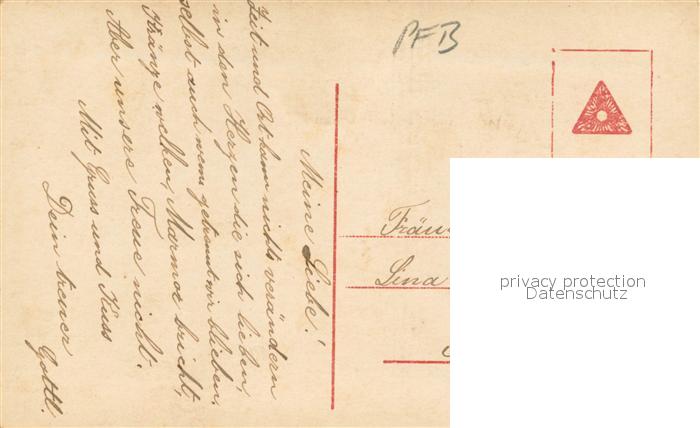 Meine Liebe!
Zeit und Ort kann nichts verändern
in den Herzen die sich lieben,
selbst auch wenn getrennt wir blieben.
Kränze welken, Marmor bricht,
Aber unsere Treue nicht.
Mit Gruss und Kuss
Dein treuer
Gottl.
PFB
Fräu
Lina
privacy protection
Datenschutz